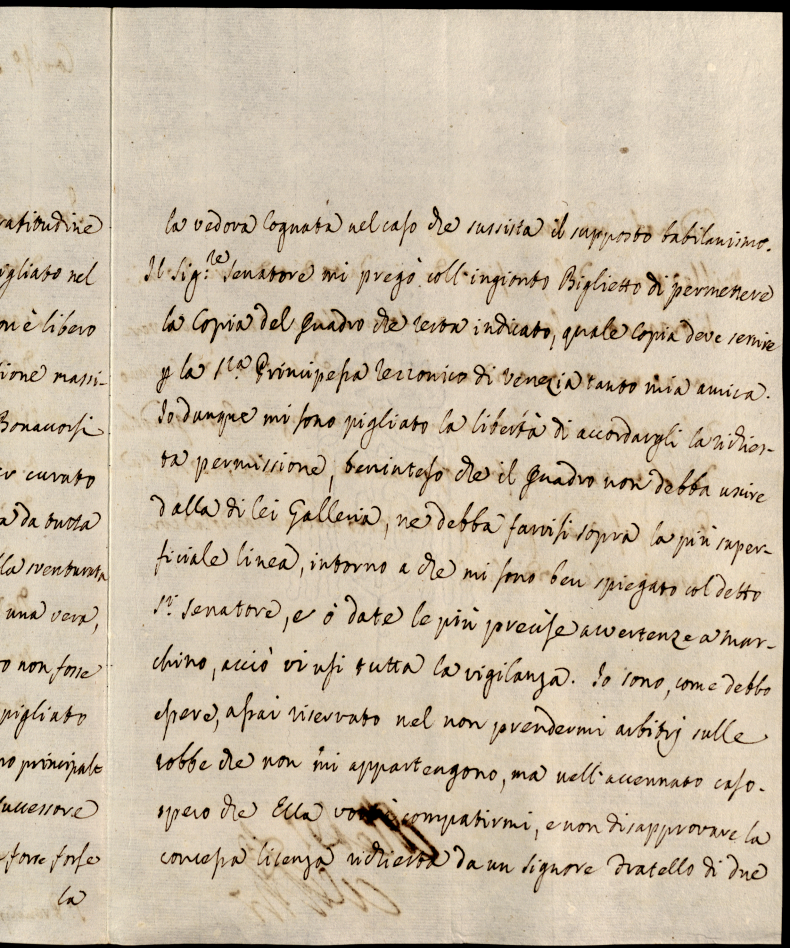 ratitudine
igliato nel
on è libero
ione massi-
Bonacorsi
er curato
a da tutta
la sventurata
una vera,
o non fosse
pigliato
no principale
successore
forse forse
la
la vedova Cognata nel caso che sussista il supposto babilanismo.
Il Sig.re Senatore mi pregò coll'ingionto Biglietto di permettere
la Copia del Quadro che resta indicato, quale copia deve servire
p la S.ra Principessa Rezzonico di Venezia tanto mia amica.
Io dunque mi sono pigliato la libertà di accordargli la richies-
ta permissione, beninteso che il Quadro non debba uscire
dalla di lei Galleria, ne debba farvisi sopra la più super-
ficiale linea, intorno a che mi sono ben spiegato col detto
S.r Senatore, e ò date le più precise avvertenze a Mar-
chino, acciò vi usi tutta la vigilanza. Io sono, come debbo
essere, assai riservato nel non prendermi arbitrj sulle
robbe che non mi appartengono, ma nell'accennato caso.
spero che Ella vorrà compatirmi, e non disapprovare la
concessa licenza richiesta da un Signore Fratello di due